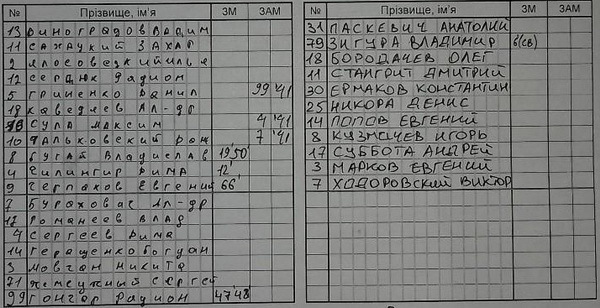 № Прізвище, ім'я ЗМ ЗАМ
13 виноградов вадим
11 Захар
2
12 сердюк радион
5 гриненко данил 99 '41
18 Ал-др
СУЛА МАКСИМ 4 '41
10 гальковский 7 '41
8 БУГАЙ Владислав 19' 50'
4 Чилингир Дима 12'
9 Черпаков Евгений 66'
7 Бурховач Ал-др
17 Романеев ВЛАД
4 Сергеев Дима
14 геращенко богдан
3 мовчан Никита
71 Сергей
99 гонгар Радион 47' 48
№ Прізвище, ім'я ЗМ ЗАМ
31 ПАСКЕВИЧ АНАТОЛИЙ
79 ЗИГУРА ВЛАДИМИР 6(св)
18 БОРОДАЧЕВ ОЛЕГ
11 СТАНГРИТ ДМИТРИЙ
30 ЕРМАКОВ КОНСТАНТИН
25 НИКОРА ДЕНИС
14 ПОПОВ ЕВГЕНИЙ
8 КУЗМИЧЕВ ИГОРЬ
17 СУББОТА АНДРЕЙ
3 МАРКОВ ЕВГЕНИЙ
7 ХОДОРОВСКИЙ ВИКТОР